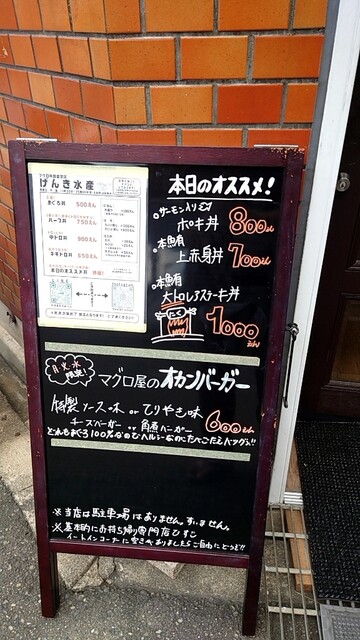 げんき水産
まぐろ丼 500えん
ハーフ丼 750えん
中トロ丼 900えん
ネギトロ丼 650えん
本日のオススメ丼
本日のオススメ!
サーモン入り
ポキ丼 800えん
本鮪
上赤身丼 700えん
本鮪
大トロレアステーキ丼
1000えん
月火水
マグロ屋のオカンバーガー
特製ソース味 or てりやき味
チーズバーガー or 角煮バーガー 600えん
どれもまぐろ100%なのでヘルシーなのにたべごたえバツグン!!
※当店は駐車場はありません。すいません。
※基本的にお持ち帰り専門店ですが
イートインコーナーに空きがありましたらご自由にどうぞ!!